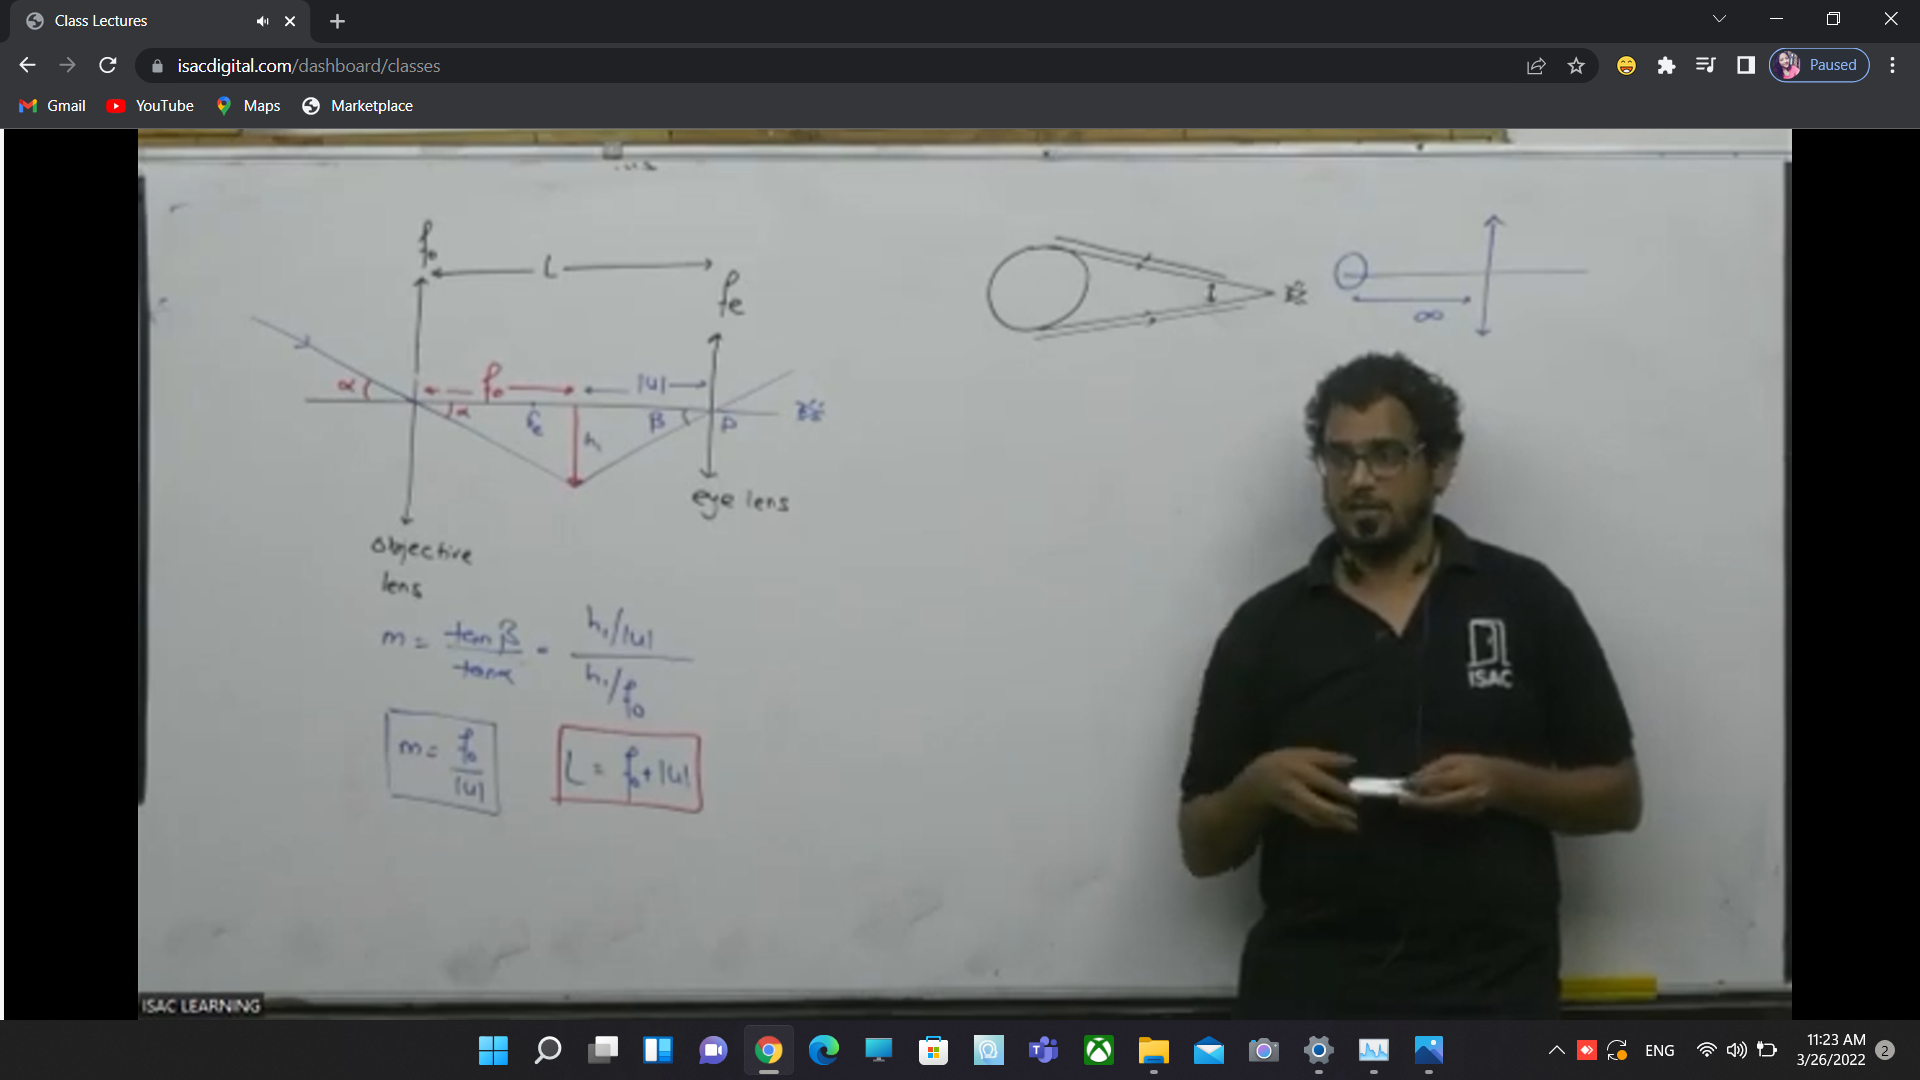 Class Lectures
isacdigital.com/dashboard/classes
Paused
Gmail
YouTube
Maps
Marketplace
f₀
L
fe
α
f₀
|u|
α
fe
h₁
β
P
eye lens
objective
lens
∞
m = tanβ/tanα = h₁/|u| / h₁/f₀
m = f₀/|u|
L = f₀+|u|
ISAC
ISAC LEARNING
ENG
11:23 AM
3/26/2022
2